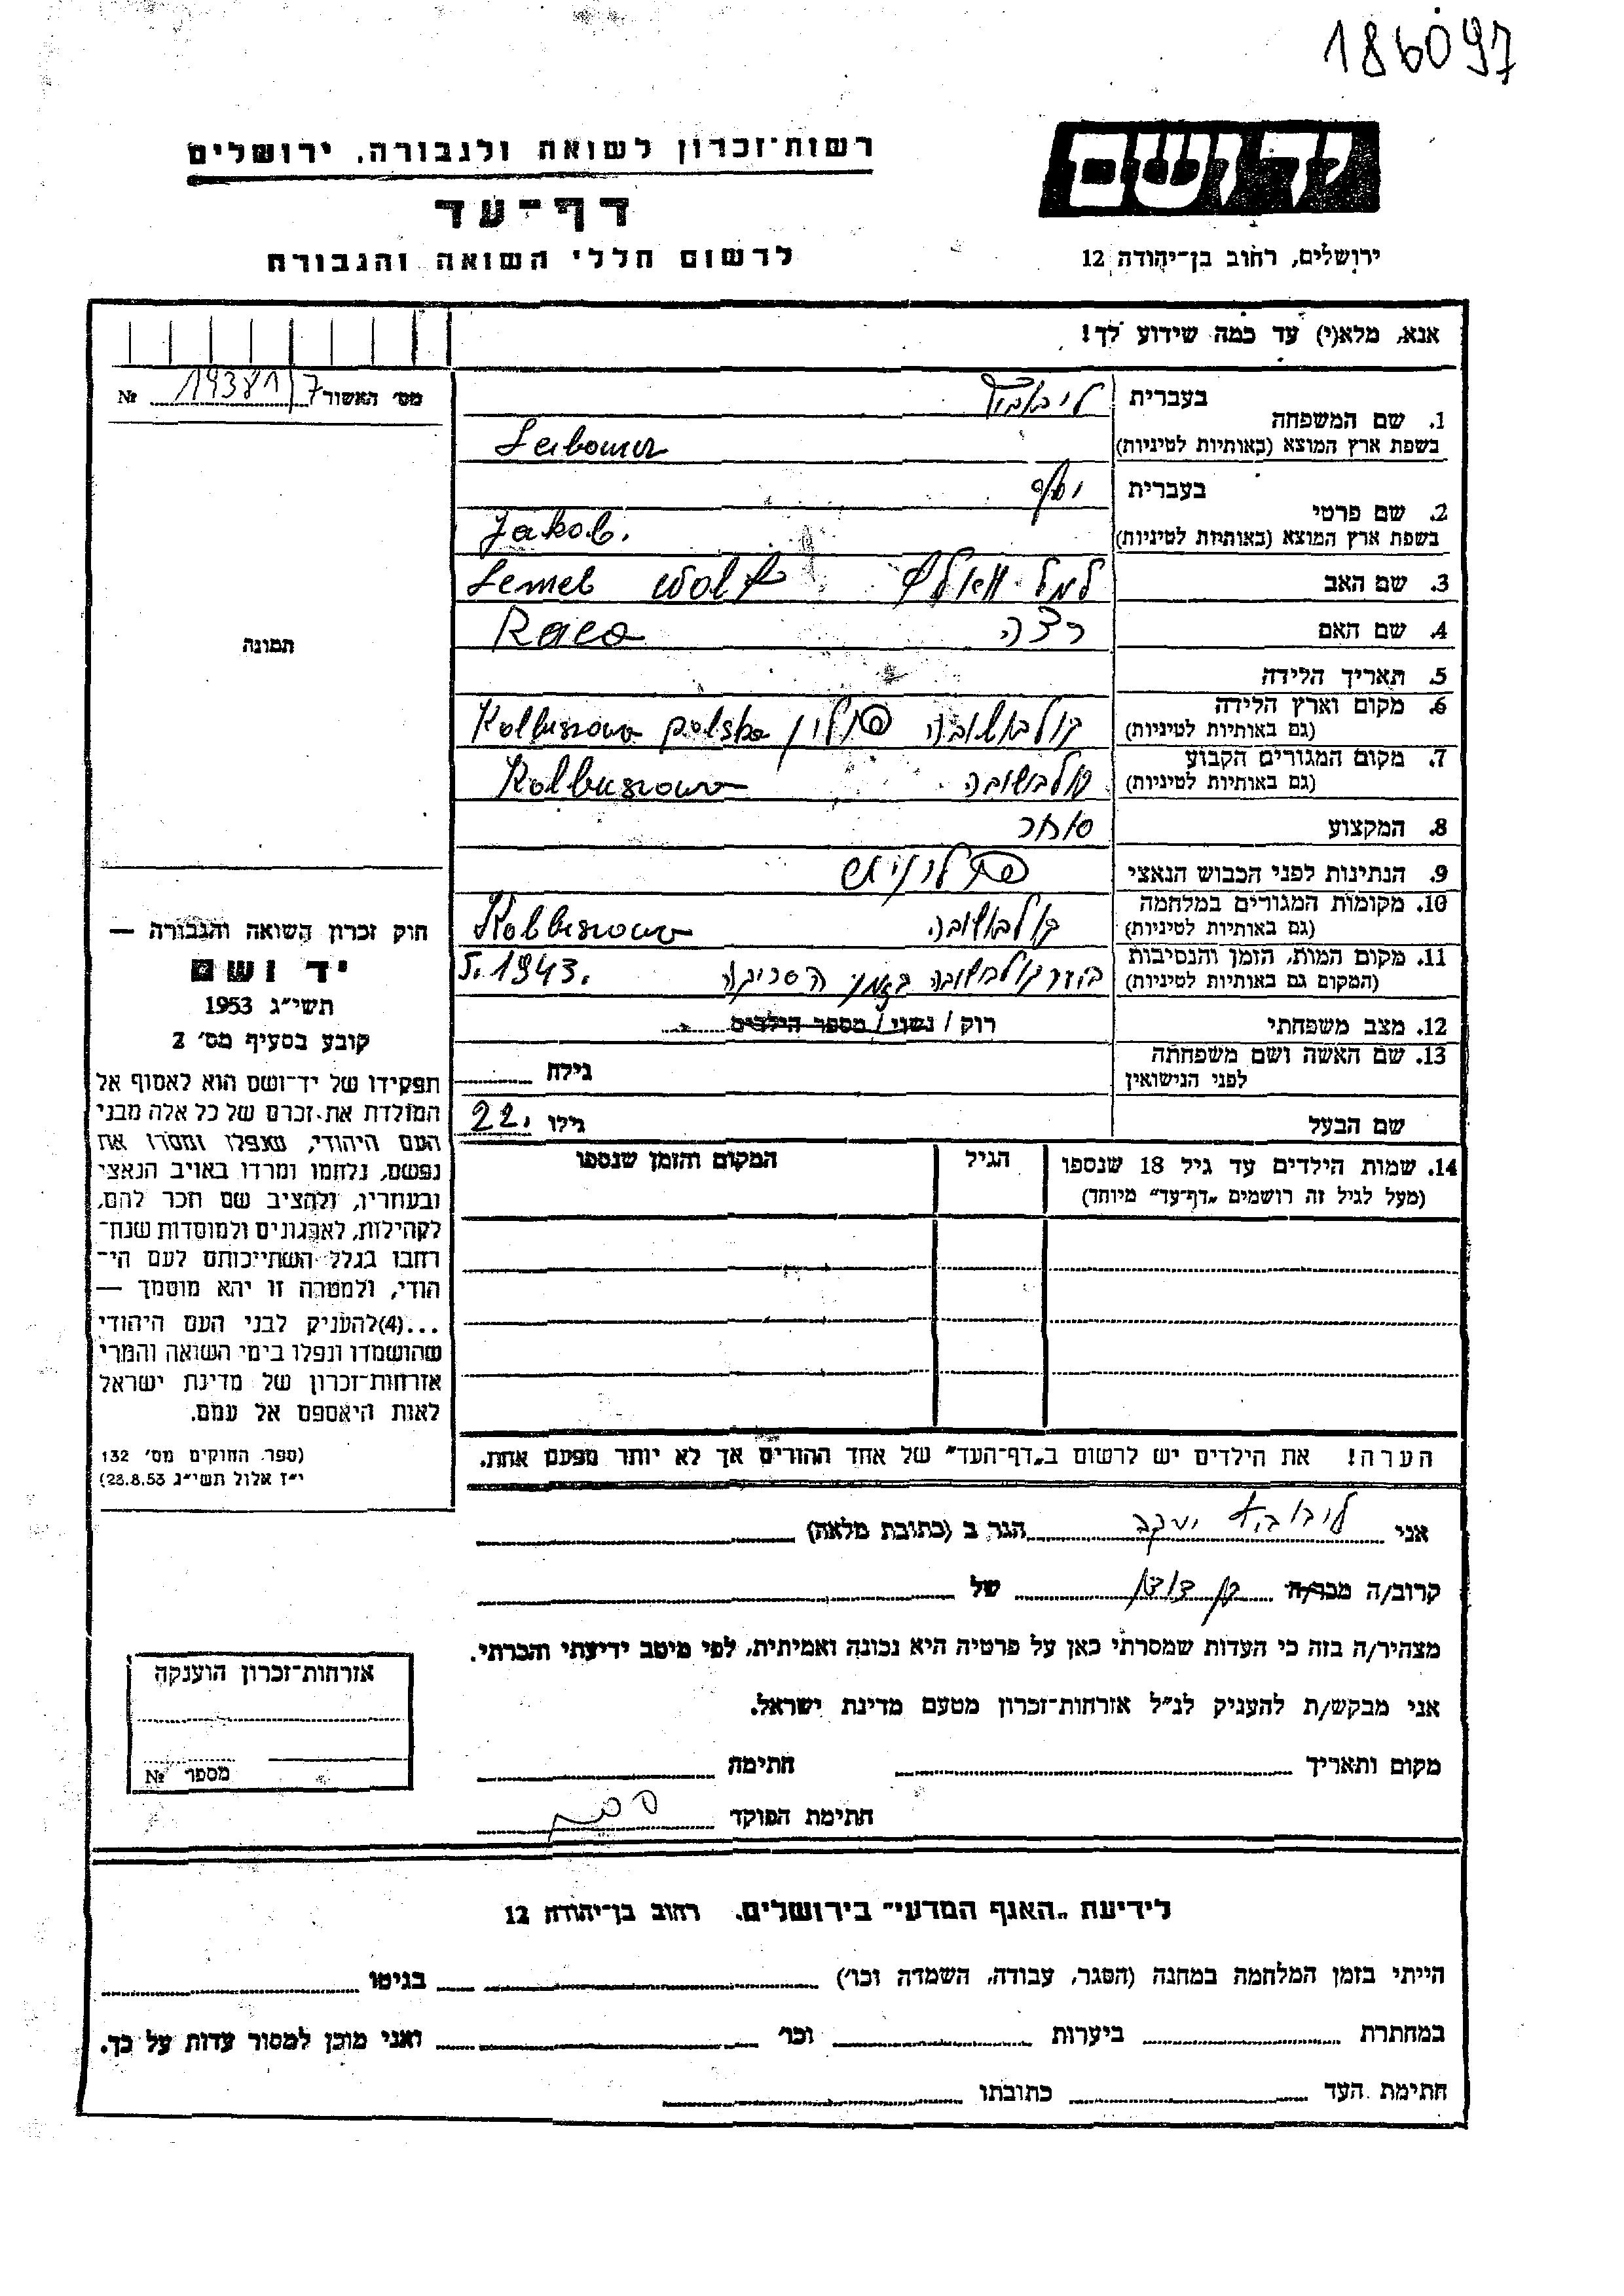 186097
יד ושם
רשות־זכרון לשואה ולגבורה, ירושלים
דף־עד
לרשום חללי השואה והגבורה
ירושלים, רחוב בן־יהודה 12
אנא, מלא(י) עד כמה שידוע לך!
מס׳ האשור 19381/7 №
תמונה
1. שם המשפחה
בעברית
בשפת ארץ המוצא (באותיות לטיניות)
2. שם פרטי
בעברית
בשפת ארץ המוצא (באותיות לטיניות) Jakob.
3. שם האב למל וואלף Lemel Wolf
4. שם האם רצה
5. תאריך הלידה
6. מקום וארץ הלידה קולבאשובה פולין Kolbuszowa polska
(גם באותיות לטיניות)
7. מקום המגורים הקבוע קולבושובה Kolbuszowa
(גם באותיות לטיניות)
8. המקצוע סוחר
9. הנתינות לפני הכבוש הנאצי
10. מקומות המגורים במלחמה קולבאשובה Kolbuszowa
(גם באותיות לטיניות)
11. מקום המות, הזמן והנסיבות 5.1943.
(המקום גם באותיות לטיניות)
12. מצב משפחתי רוק / נשוי / מספר הילדים
13. שם האשה ושם משפחתה
לפני הנישואין
גילה
שם הבעל גילו 22.
14. שמות הילדים עד גיל 18 שנספו
(מעל לגיל זה רושמים „דף־עד” מיוחד)
הגיל
המקום והזמן שנספו
הערה! את הילדים יש לרשום ב„דף־העד” של אחד ההורים אך לא יותר מפעם אחת.
חוק זכרון השואה והגבורה —
יד ושם
תשי״ג 1953
קובע בסעיף מס׳ 2
תפקידו של יד־ושם הוא לאסוף אל
המולדת את זכרם של כל אלה מבני
העם היהודי, שנפלו ומסרו את
נפשם, נלחמו ומרדו באויב הנאצי
ובעוזריו, ולהציב שם וזכר להם,
לקהילות, לארגונים ולמוסדות שנח־
רבו בגלל השתייכותם לעם הי־
הודי, ולמטרה זו יהא מוסמך —
...(4)להעניק לבני העם היהודי
שהושמדו ונפלו בימי השואה והמרי
אזרחות־זכרון של מדינת ישראל
לאות היאספם אל עמם.
(ספר החוקים מס׳ 132
י״ז אלול תשי״ג 28.8.53)
אני יעקב הגר ב (כתובת מלאה)
קרוב/ה מכר/ה בן דודן של
מצהיר/ה בזה כי העדות שמסרתי כאן על פרטיה היא נכונה ואמיתית, לפי מיטב ידיעתי והכרתי.
אני מבקש/ת להעניק לנ״ל אזרחות־זכרון מטעם מדינת ישראל.
מקום ותאריך חתימה
חתימת הפוקד
אזרחות־זכרון הוענקה
מספר №
לידיעת „האגף המדעי” בירושלים, רחוב בן־יהודה 12
הייתי בזמן המלחמה במחנה (הסגר, עבודה, השמדה וכו׳) בגיטו
במחתרת ביערות וכו׳ ואני מוכן למסור עדות על כך.
חתימת העד כתובתו